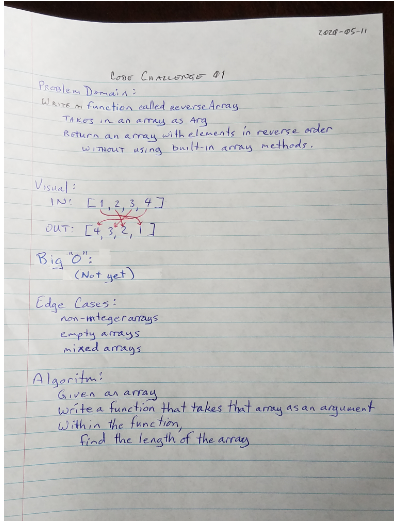 2020-05-11
CODE CHALLENGE 01
Problem Domain:
Write a function called reverseArray
Takes in an array as Arg
Return an array with elements in reverse order
without using built-in array methods.
Visual:
IN: [1, 2, 3, 4]
OUT: [4, 3, 2, 1]
Big "O":
(Not yet)
Edge Cases:
non-integer arrays
empty arrays
mixed arrays
Algoritm:
Given an array
Write a function that takes that array as an argument
Within the function,
find the length of the array